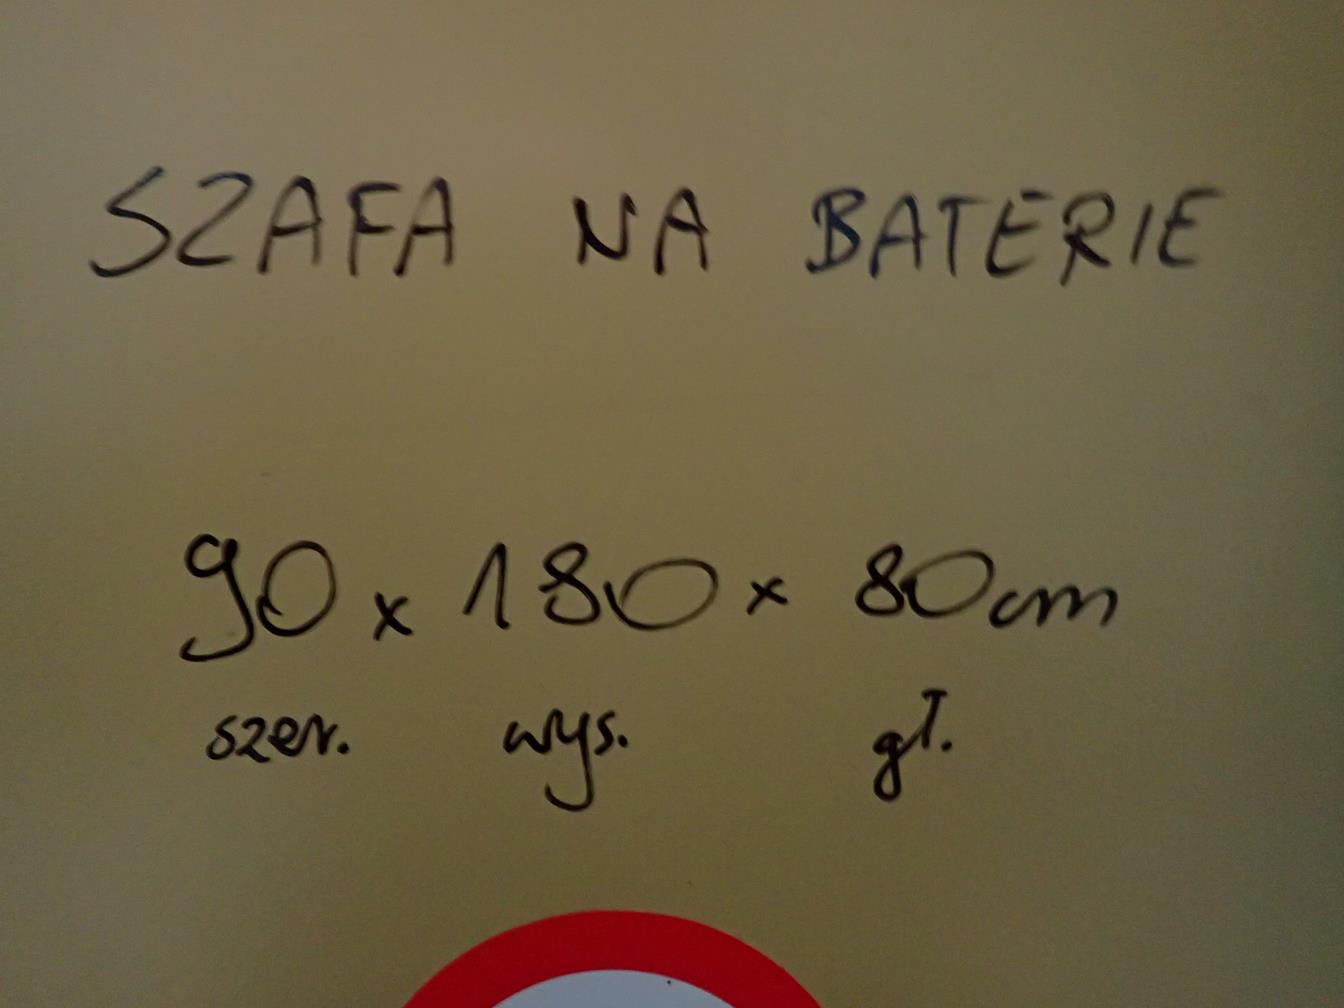 SZAFA NA BATERIE
90 x 180 x 80cm
szer. wys. gł.